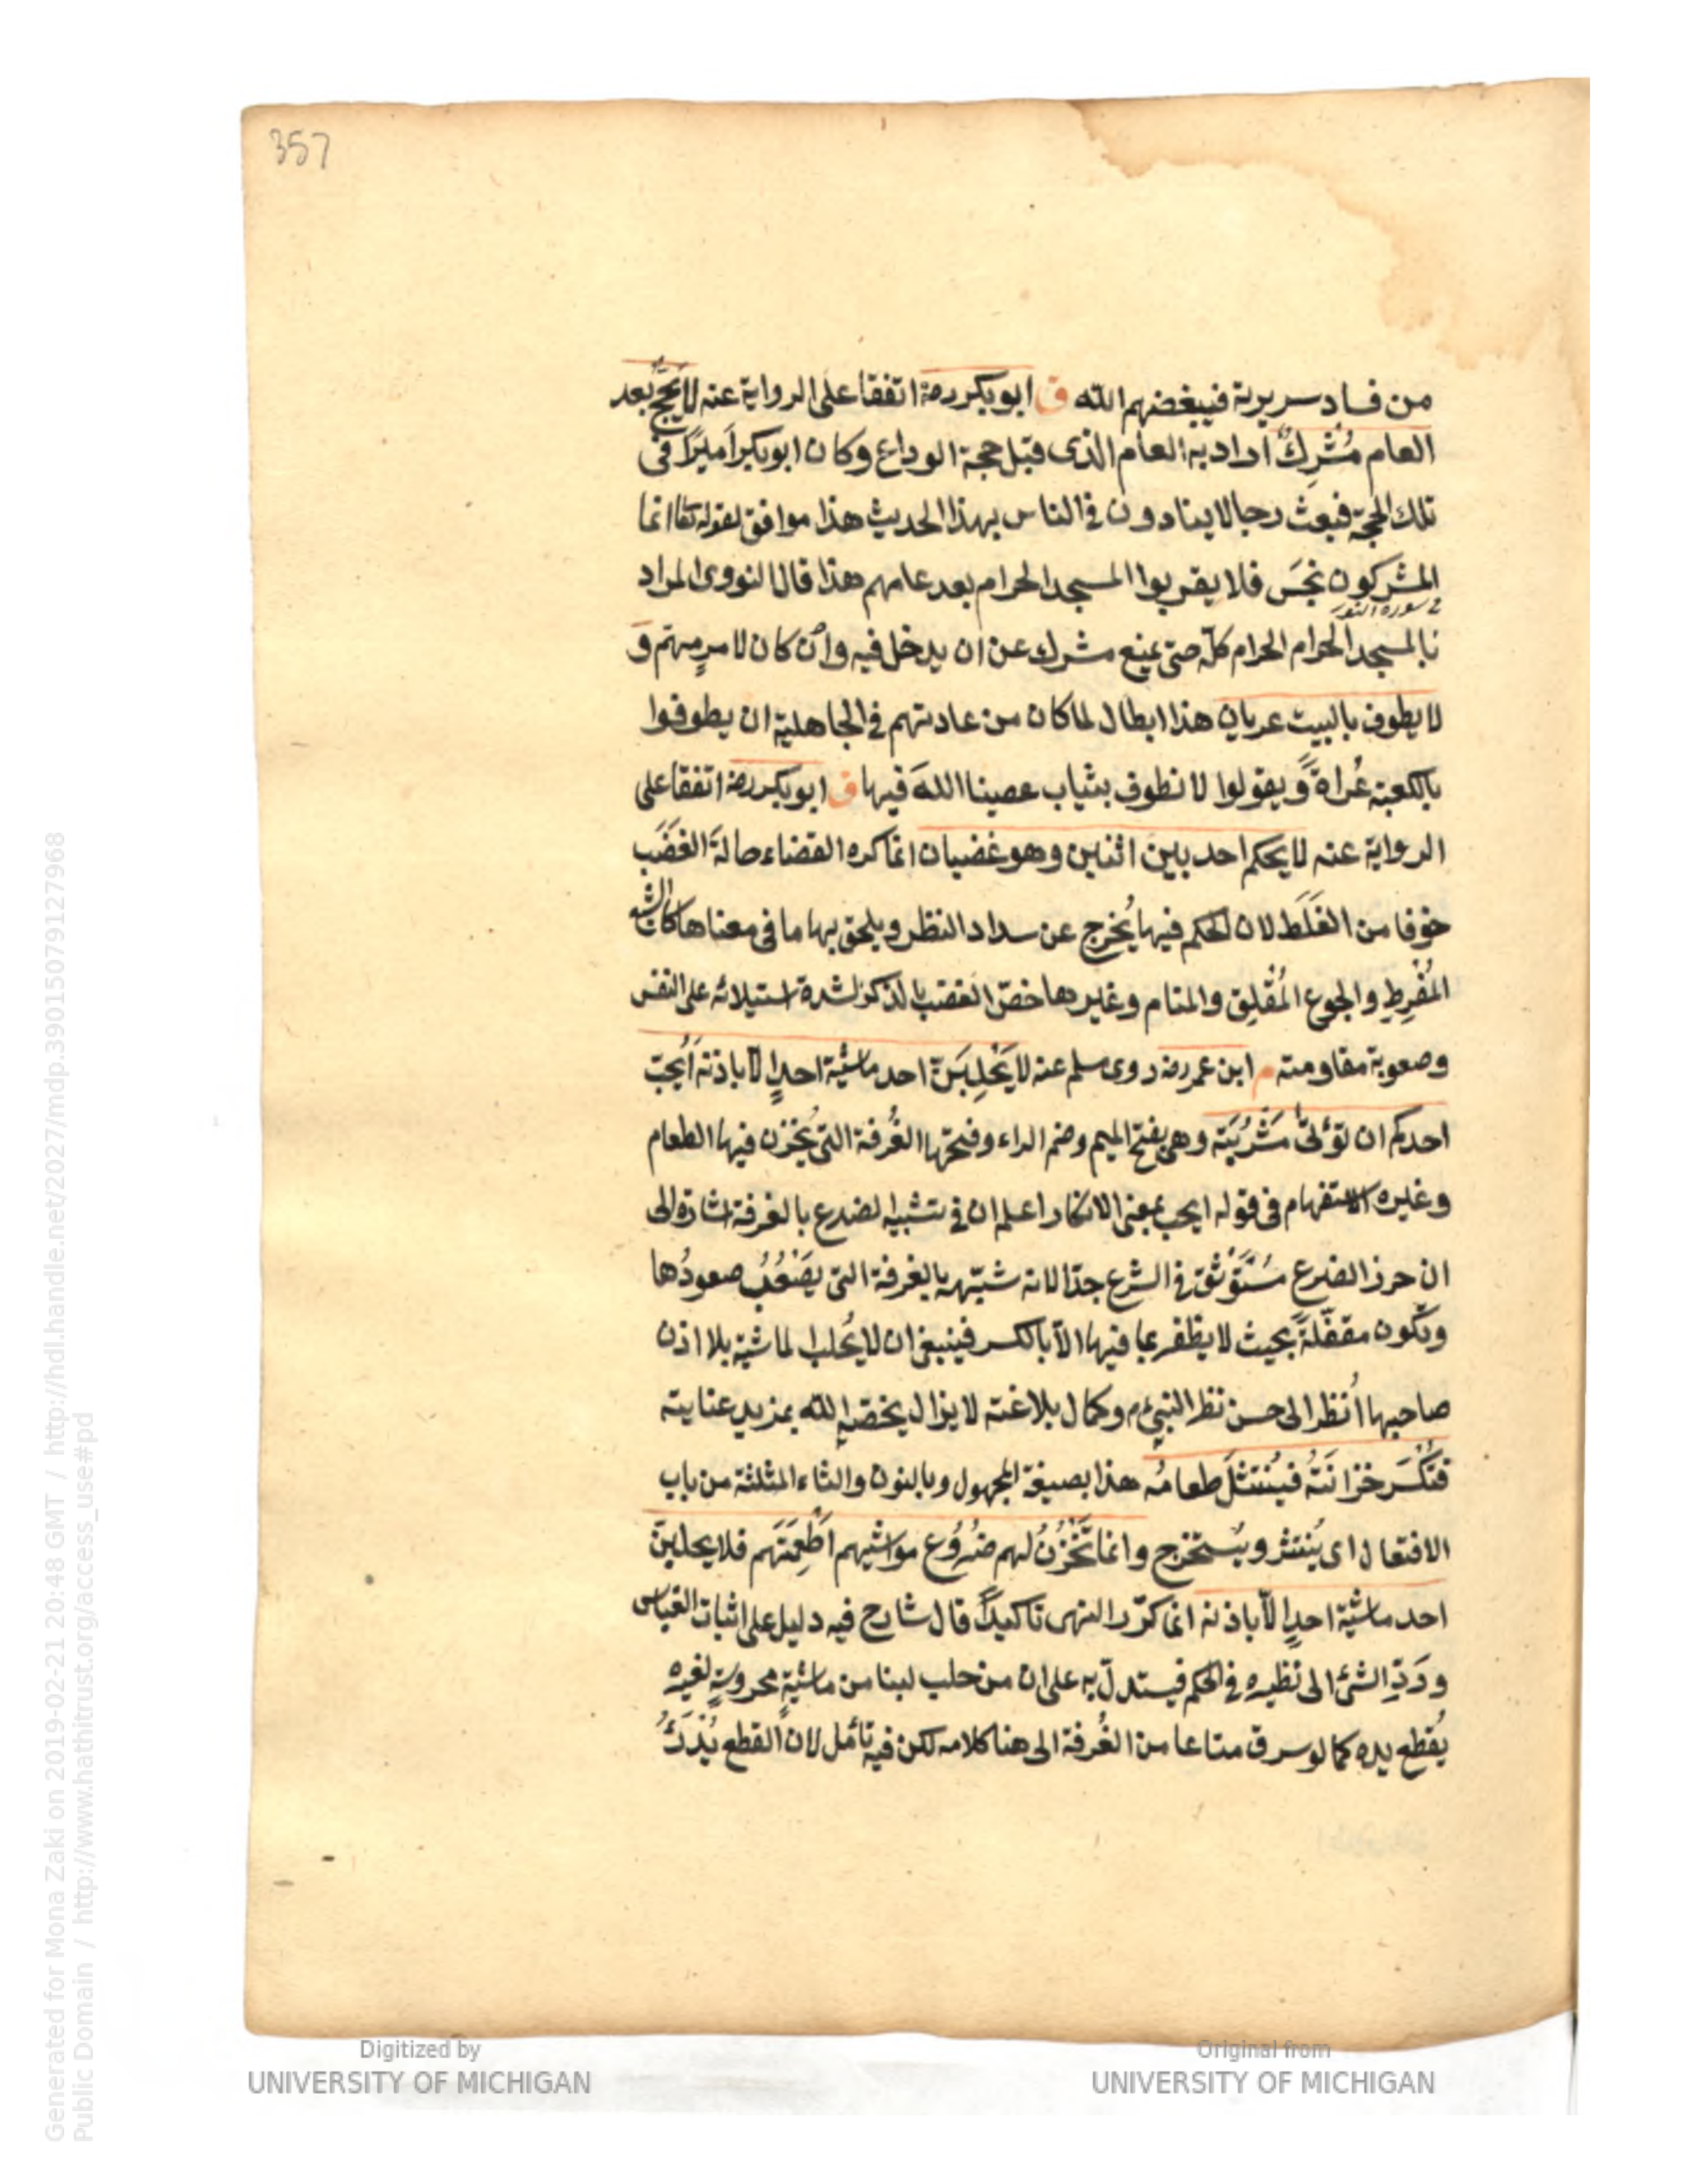 357
من فساد سريرية فيبغضهم الله ق ابو بكر رضه اتفقا على الرواية عنه لا يَحُجُّ بعد
العام مُشْرِكٌ اراد به العام الذى قبل حجة الوداع وكان ابو بكر اَميرًا فى
تلك الحجة فبعث رجالا ينادون فى الناس بهذا الحديث هذا موافق لقوله تعا انما
المشركون نجَسَ فلا يقربوا المسجد الحرام بعد عامهم هذا قال النووى المراد
فى سورة
بالمسجد الحرام الحرام كلّه حتى يمنع مشرك عن ان يدخل فيه وان كان لامرٍ مهمّ و
لا يطوف بالبيت عريان هذا ابطال لما كان من عادتهم فى الجاهلية ان يطوفوا
بالكعبة عُراةً ويقولوا لا نطوف بثياب عصينا اللهَ فيها ق ابو بكر رضه اتفقا على
الرواية عنه لا يحكم احد بين اثنين وهو غضبان انما كره القضاء حالة الغضَب
خوفا من الغَلَط لان الحكم فيها يُخرج عن سداد النظر ويلحق بها ما فى معناها كالشبع
المُفْرِطِ والجوع المُقْلِق والمنام وغيرها خصّ الغضب بالذكر لشدة استيلائه على النفس
وصعوبة مقاومته م ابن عمر رضه روى مسلم عنه لا يَحْلِبَنَّ احد ماشية احدٍ الّا باذنه اَيُحِبّ
احدكم ان تؤتى مَشْرُبَتَه وهى بفتح الميم وضم الراء وفتحها الغُرفة التى يُخْزن فيها الطعام
وغيره الاستفهام فى قوله ايحب بمعنى الانكار اعلم ان فى تشبيه لضرع بالغرفة اشارة الى
ان حرز الضرع مُسْتَوْثق فى الشرع جدّا لانه شبّهه بالغرفة التى يَصْعُبُ صعودُها
وتكون مقفّلةً بحيث لا يظفر بما فيها الّا بالكسر فينبغى ان لا يُحلب الماشية بلا اذن
صاحبها اُنظر الى حسن نظر النبىء م وكمال بلاغته لا يزال يخصّه الله بمزيد عنايته
فتُكْسَر خزانَتُه فيُنْتَثلَ طعامُه هذا بصيغة المجهول وبالنون والثاء المثلثة من باب
الافتعال اى يُنتثر ويُستخرج وانما تَخْزُنُ لهم ضُرُوعُ مواشيهم اَطْعِمَتَهم فلا يحلبنّ
احد ماشية احدٍ الّا باذنه انما كرّر النهى تاكيدًا قال شارح فيه دليل على اثبات القياس
وردِّ الشئ الى نظيره فى الحكم فيستدلّ به على ان من حلب لبنا من ماشيةٍ محروسةٍ لغيره
يُقطع يده كما لو سرق متاعا من الغُرفة الى هنا كلامه لكن فيه تأمّل لان القطع يُدْرَئُ
Digitized by
UNIVERSITY OF MICHIGAN
Original from
UNIVERSITY OF MICHIGAN
Generated for Mona Zaki on 2019-02-21 20:48 GMT / http://hdl.handle.net/2027/mdp.39015079127968
Public Domain / http://www.hathitrust.org/access_use#pd